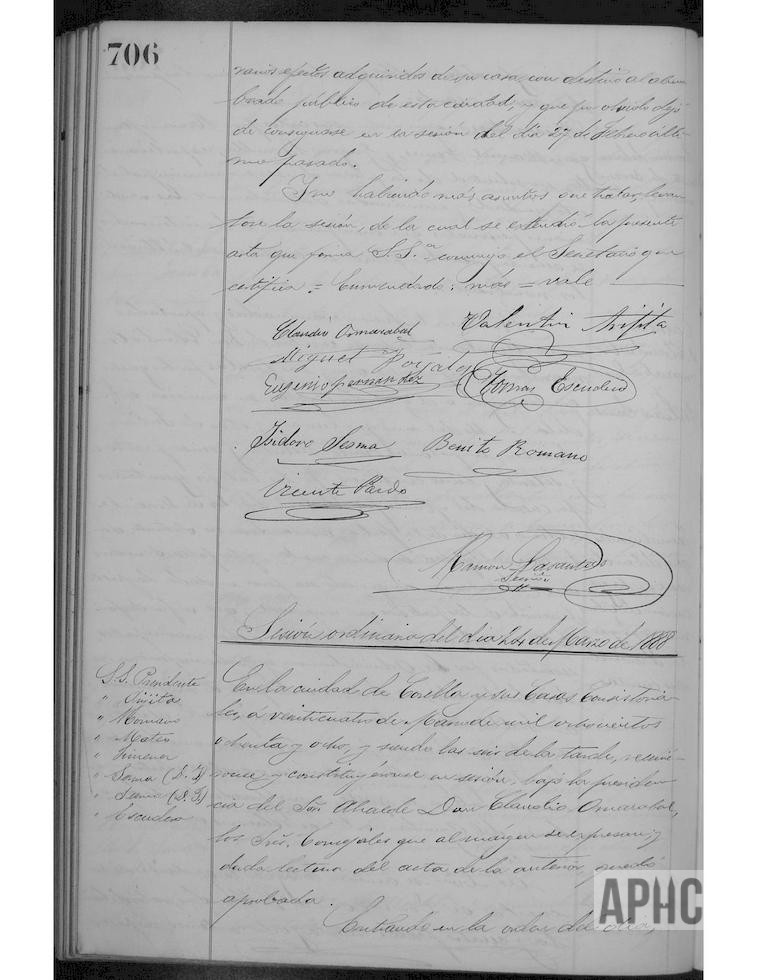 706
varios efectos adquiridos de su casa con destino al alum-
brado público de esta ciudad, y que por olvido dejó
de consignarse en la sesión del día 27 de Febrero últi-
mo pasado.
Y no habiendo más asuntos que tratar, levan-
tose la sesión, de la cual se extendió la presente
acta que firma S.S.ª conmigo el Secretario que
certifica = Enmendado: más = vale
Claudio Omarabal Valentin Arifita
Miguel
Eugenio Fernandez Tomas Escudero
Isidoro Sesma Benito Romano
Vicente Pardo
Ramón
Sesión ordinaria del día 24 de Marzo de 1888
S.S. Presidente
" Romano
" Mateo
" Jimenez
" Sesma (D. I)
" Sesma (D. F)
" Escudero
En la ciudad de Corella y sus Casas Consistoria-
les, á veinticuatro de Marzo de mil ochocientos
ochenta y ocho, y siendo las seis de la tarde, reunié-
ronse y constituyéronse en sesión, bajo la presiden-
cia del Sor. Alcalde Don Claudio Omarabal,
los Srs. Concejales que al margen se expresan; y
dada lectura del acta de la anterior, quedó
aprobada.
Entrando en la orden del día,
APHC